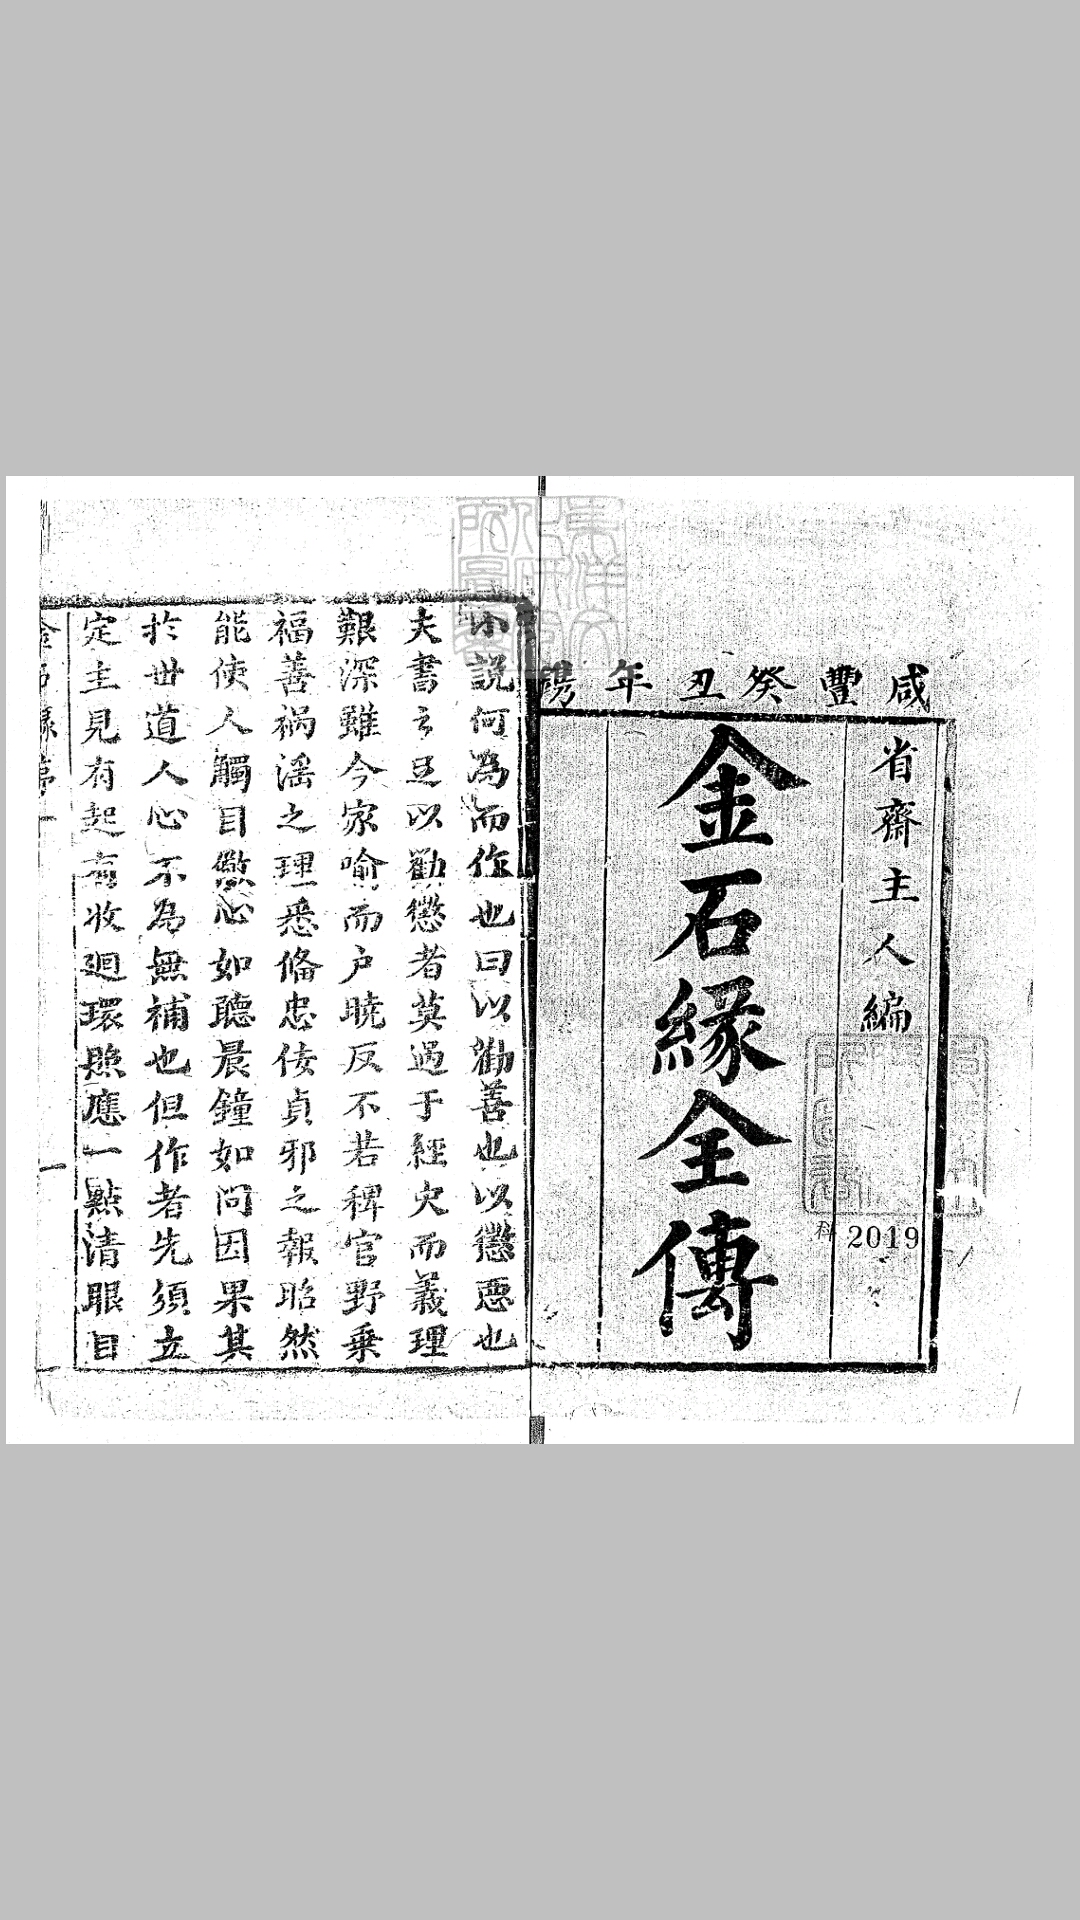 咸豐癸丑年鐫
省齋主人編
金石緣全傳
科 2019
小説何為而作也曰以勸善也以懲惡也
夫書之足以勸懲者莫過于經史而義理
艱深難令家喻而户曉反不若稗官野乗
福善禍淫之理悉備忠佞貞邪之報昭然
能使人觸目儆心如聽晨鐘如問因果其
於世道人心不為無補也但作者先須立
定主見有起有收廻環照應一點清眼目
金石緣序 一